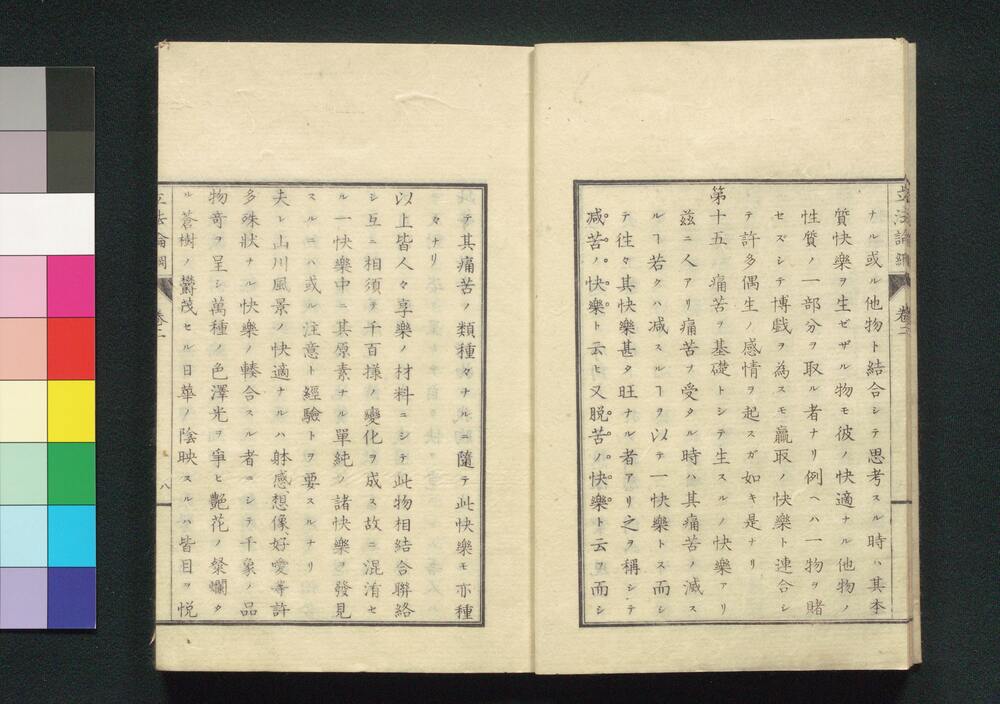 立法論綱 卷二
ナル或ル他物ト結合シテ思考スル時ハ其本
質快樂ヲ生ゼザル物モ彼ノ快適ナル他物ノ
性質ノ一部分ヲ取ル者ナリ例ヘハ一物ヲ賭
セズシテ博戯ヲ為スモ贏取ノ快樂ト連合シ
テ許多偶生ノ感情ヲ起スガ如キ是ナリ
第十五 痛苦ヲ基礎トシテ生スルノ快樂アリ
茲ニ人アリ痛苦ヲ受タル時ハ其痛苦ノ滅ス
ルヿ若クハ减スルヿヲ以テ一快樂トス而シ
テ徃々其快樂甚タ旺ナル者アリ之ヲ稱シテ
减苦ノ快樂ト云ヒ又脱苦ノ快樂ト云フ而シ
テ其痛苦ノ類種々ナルニ隨テ此快樂モ亦種
々ナリ
以上皆人々享樂ノ材料ニシテ此物相結合聯絡
シ互ニ相須テ千百様ノ變化ヲ成ス故ニ混淆セ
ル一快樂中ニ其原素ナル單純ノ諸快樂ヲ發見
スルニハ或ル注意ト經驗トヲ要スルナリ
夫レ山川風景ノ快適ナルハ躰感、想像、好愛等許
多殊狀ナル快樂ノ輳合スル者ニシテ千象ノ品
物奇ヲ呈シ萬種ノ色澤光ヲ爭ヒ艷花ノ粲爛タ
ル蒼樹ノ欝茂セル日華ノ陰映スルハ皆目ヲ悦
立法論綱 卷二 八